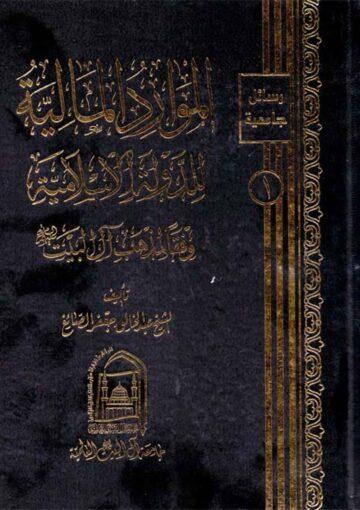 رسائل
جامعية
١
الموارد المالية
للدولة الإسلامية
وفقا لمذهب آل البيت
تأليف
الشيخ عبد الخالق جعفر الصايغ
جامعة آل البيت العالمية